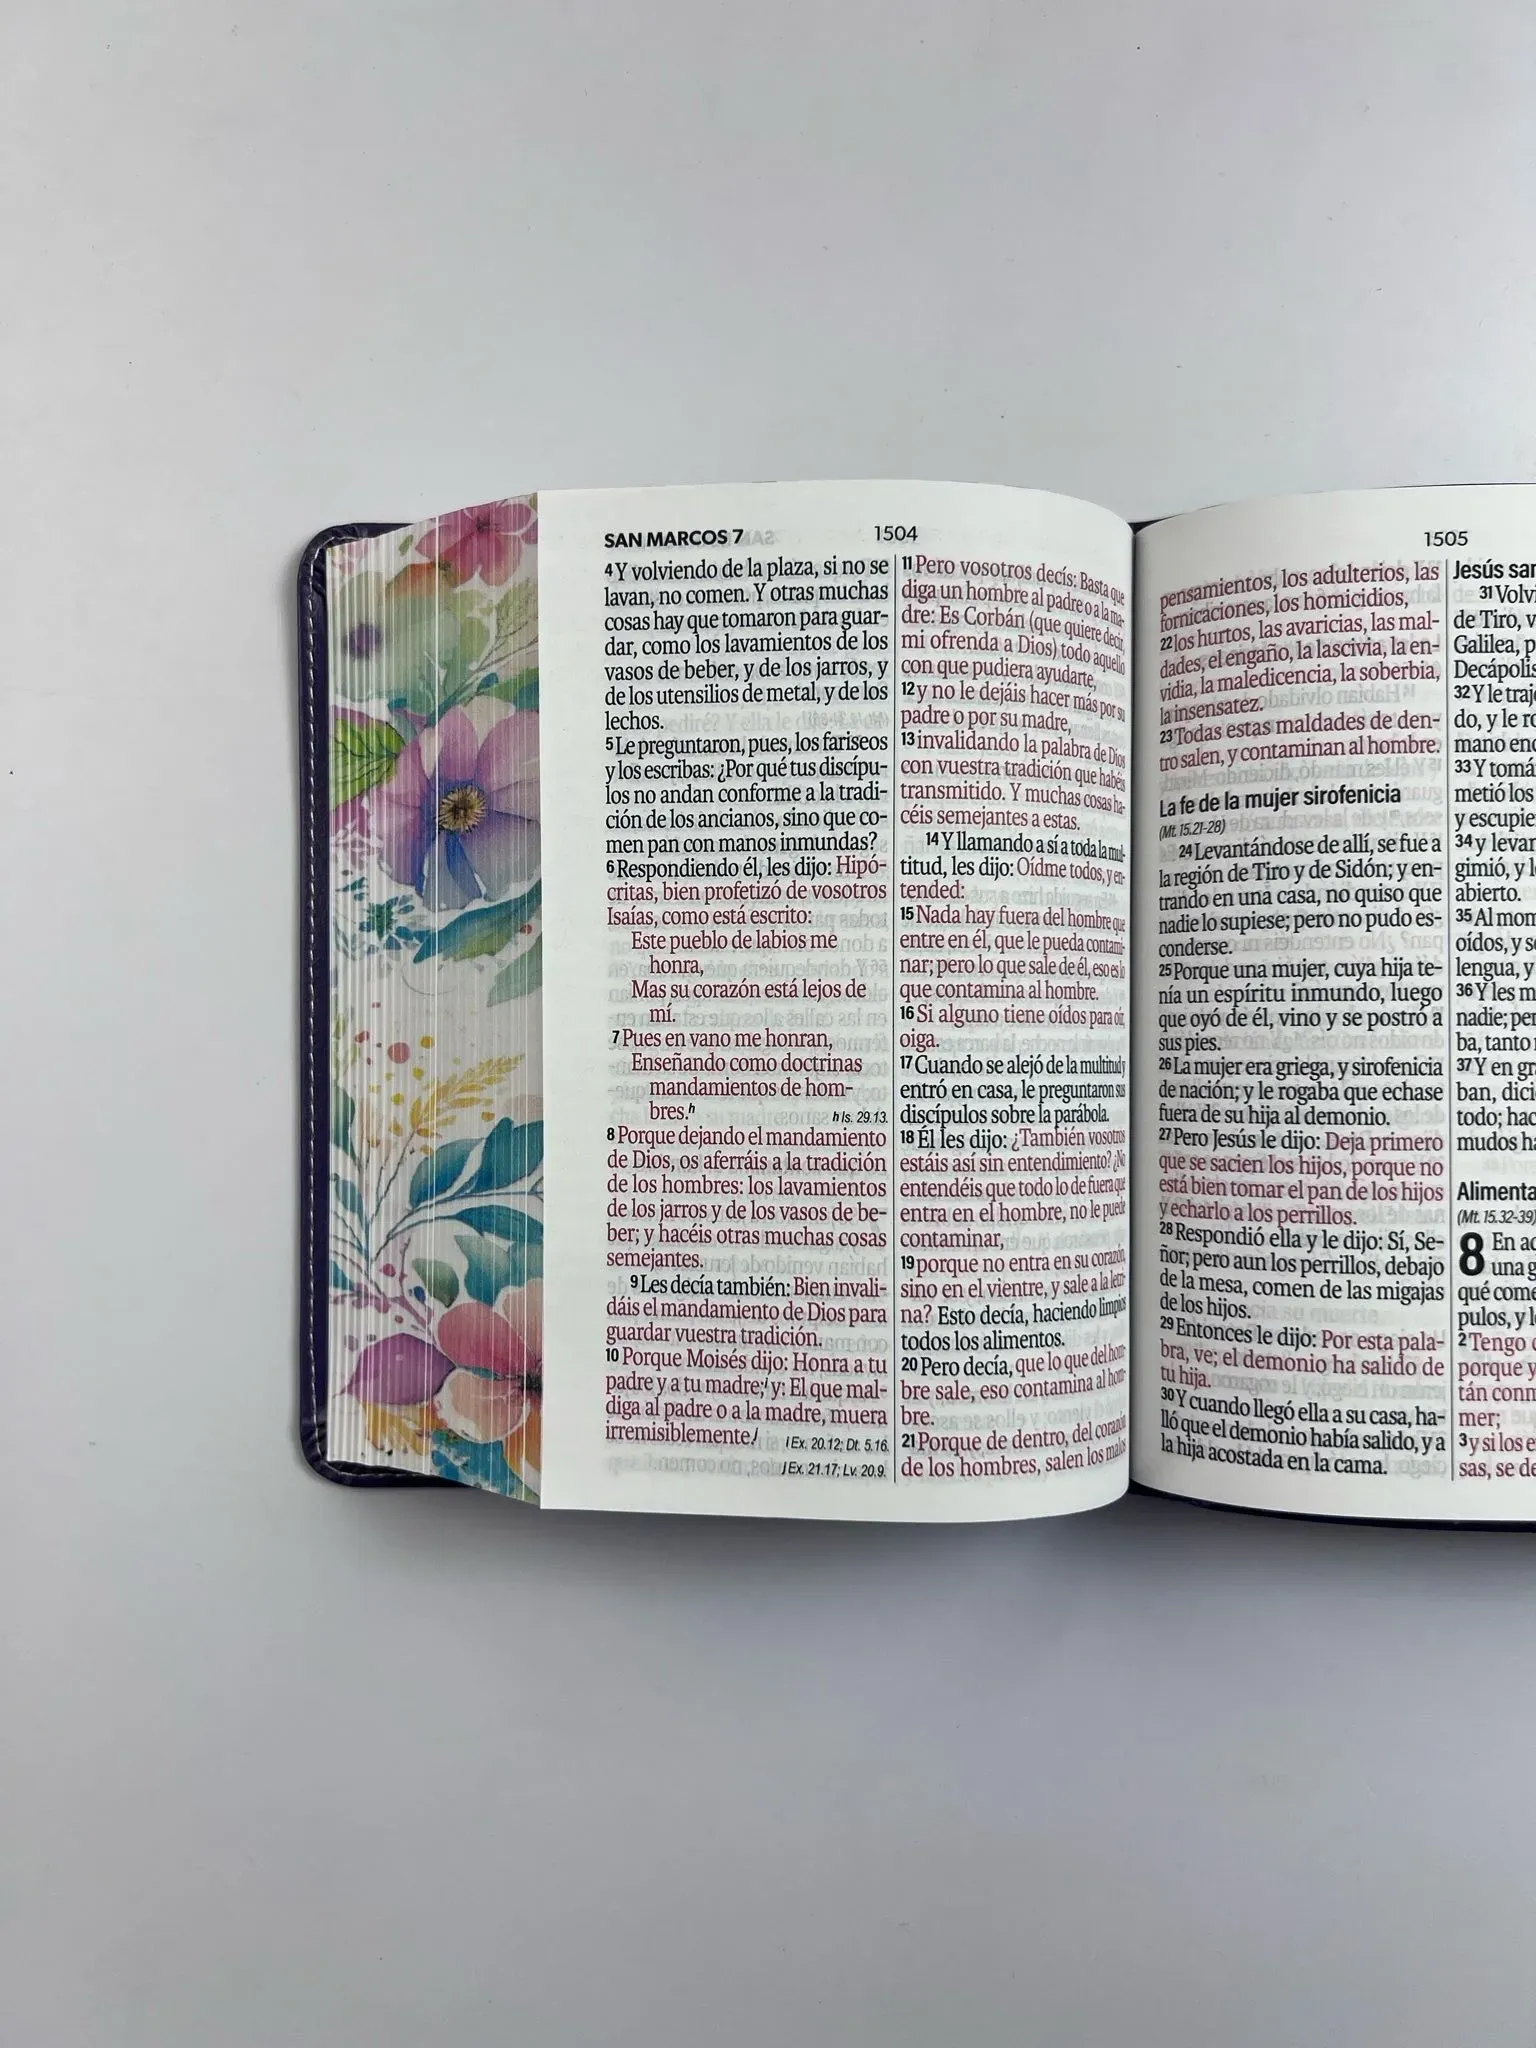 SAN MARCOS 7
1504
4 Y volviendo de la plaza, si no se
lavan, no comen. Y otras muchas
cosas hay que tomaron para guar-
dar, como los lavamientos de los
vasos de beber, y de los jarros, y
de los utensilios de metal, y de los
lechos.
5 Le preguntaron, pues, los fariseos
y los escribas: ¿Por qué tus discípu-
los no andan conforme a la tradi-
ción de los ancianos, sino que co-
men pan con manos inmundas?
6 Respondiendo él, les dijo: Hipó-
critas, bien profetizó de vosotros
Isaías, como está escrito:
Este pueblo de labios me
honra,
Mas su corazón está lejos de
mí.
7 Pues en vano me honran,
Enseñando como doctrinas
mandamientos de hom-
bres.h
h Is. 29.13.
8 Porque dejando el mandamiento
de Dios, os aferráis a la tradición
de los hombres: los lavamientos
de los jarros y de los vasos de be-
ber; y hacéis otras muchas cosas
semejantes.
9 Les decía también: Bien invali-
dáis el mandamiento de Dios para
guardar vuestra tradición.
10 Porque Moisés dijo: Honra a tu
padre y a tu madre;i y: El que mal-
diga al padre o a la madre, muera
irremisiblemente.j
i Ex. 20.12; Dt. 5.16.
j Ex. 21.17; Lv. 20.9.
11 Pero vosotros decís: Basta que
diga un hombre al padre o a la ma-
dre: Es Corbán (que quiere decir,
mi ofrenda a Dios) todo aquello
con que pudiera ayudarte,
12 y no le dejáis hacer más por su
padre o por su madre,
13 invalidando la palabra de Dios
con vuestra tradición que habéis
transmitido. Y muchas cosas ha-
céis semejantes a estas.
14 Y llamando a sí a toda la mul-
titud, les dijo: Oídme todos, y en-
tended:
15 Nada hay fuera del hombre que
entre en él, que le pueda contami-
nar; pero lo que sale de él, eso es lo
que contamina al hombre.
16 Si alguno tiene oídos para oír,
oiga.
17 Cuando se alejó de la multitud y
entró en casa, le preguntaron sus
discípulos sobre la parábola.
18 Él les dijo: ¿También vosotros
estáis así sin entendimiento? ¿No
entendéis que todo lo de fuera que
entra en el hombre, no le puede
contaminar,
19 porque no entra en su corazón,
sino en el vientre, y sale a la letri-
na? Esto decía, haciendo limpios
todos los alimentos.
20 Pero decía, que lo que del hom-
bre sale, eso contamina al hom-
bre.
21 Porque de dentro, del corazón
de los hombres, salen los malos
1505
pensamientos, los adulterios, las
fornicaciones, los homicidios,
22 los hurtos, las avaricias, las mal-
dades, el engaño, la lascivia, la en-
vidia, la maledicencia, la soberbia,
la insensatez.
23 Todas estas maldades de den-
tro salen, y contaminan al hombre.
La fe de la mujer sirofenicia
(Mt. 15.21-28)
24 Levantándose de allí, se fue a
la región de Tiro y de Sidón; y en-
trando en una casa, no quiso que
nadie lo supiese; pero no pudo es-
conderse.
25 Porque una mujer, cuya hija te-
nía un espíritu inmundo, luego
que oyó de él, vino y se postró a
sus pies.
26 La mujer era griega, y sirofenicia
de nación; y le rogaba que echase
fuera de su hija al demonio.
27 Pero Jesús le dijo: Deja primero
que se sacien los hijos, porque no
está bien tomar el pan de los hijos
y echarlo a los perrillos.
28 Respondió ella y le dijo: Sí, Se-
ñor; pero aun los perrillos, debajo
de la mesa, comen de las migajas
de los hijos.
29 Entonces le dijo: Por esta pala-
bra, ve; el demonio ha salido de
tu hija.
30 Y cuando llegó ella a su casa, ha-
lló que el demonio había salido, y a
la hija acostada en la cama.
Jesús
31 Volvi
de Tiro,
Galilea,
Decápolis
32 Y le
do, y le
mano
33 Y
metió los
y
34 y
gimió, y
abierto.
35 Al
oídos, y
lengua, y
36 Y les
nadie;
ba, tanto
37 Y en
ban,
todo;
mudos
Alimenta
(Mt. 15.32-39)
8 En
una
qué
pulos, y
2 Tengo
porque
tán
mer;
3 y si los
sas, se